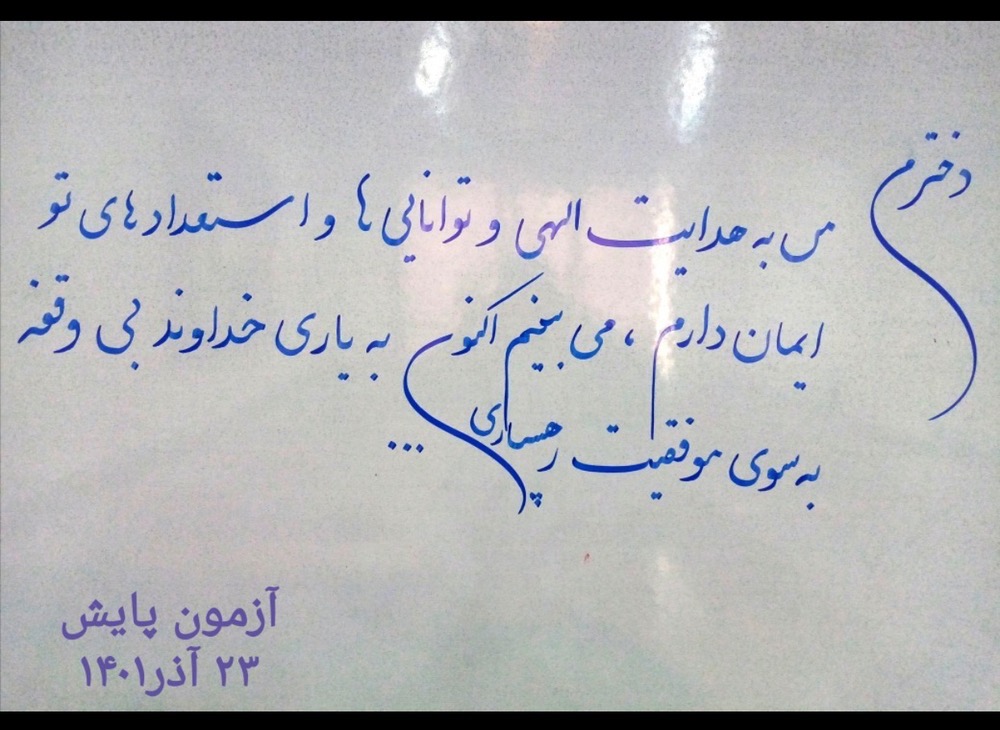 دخترم
من به هدایت الهی و توانایی ها و استعدادهای تو
ایمان دارم ، می بینم اکنون به یاری خداوند بی وقفه
به سوی موفقیت رهسپاری ...
آزمون پایش
۲۳ آذر۱۴۰۱